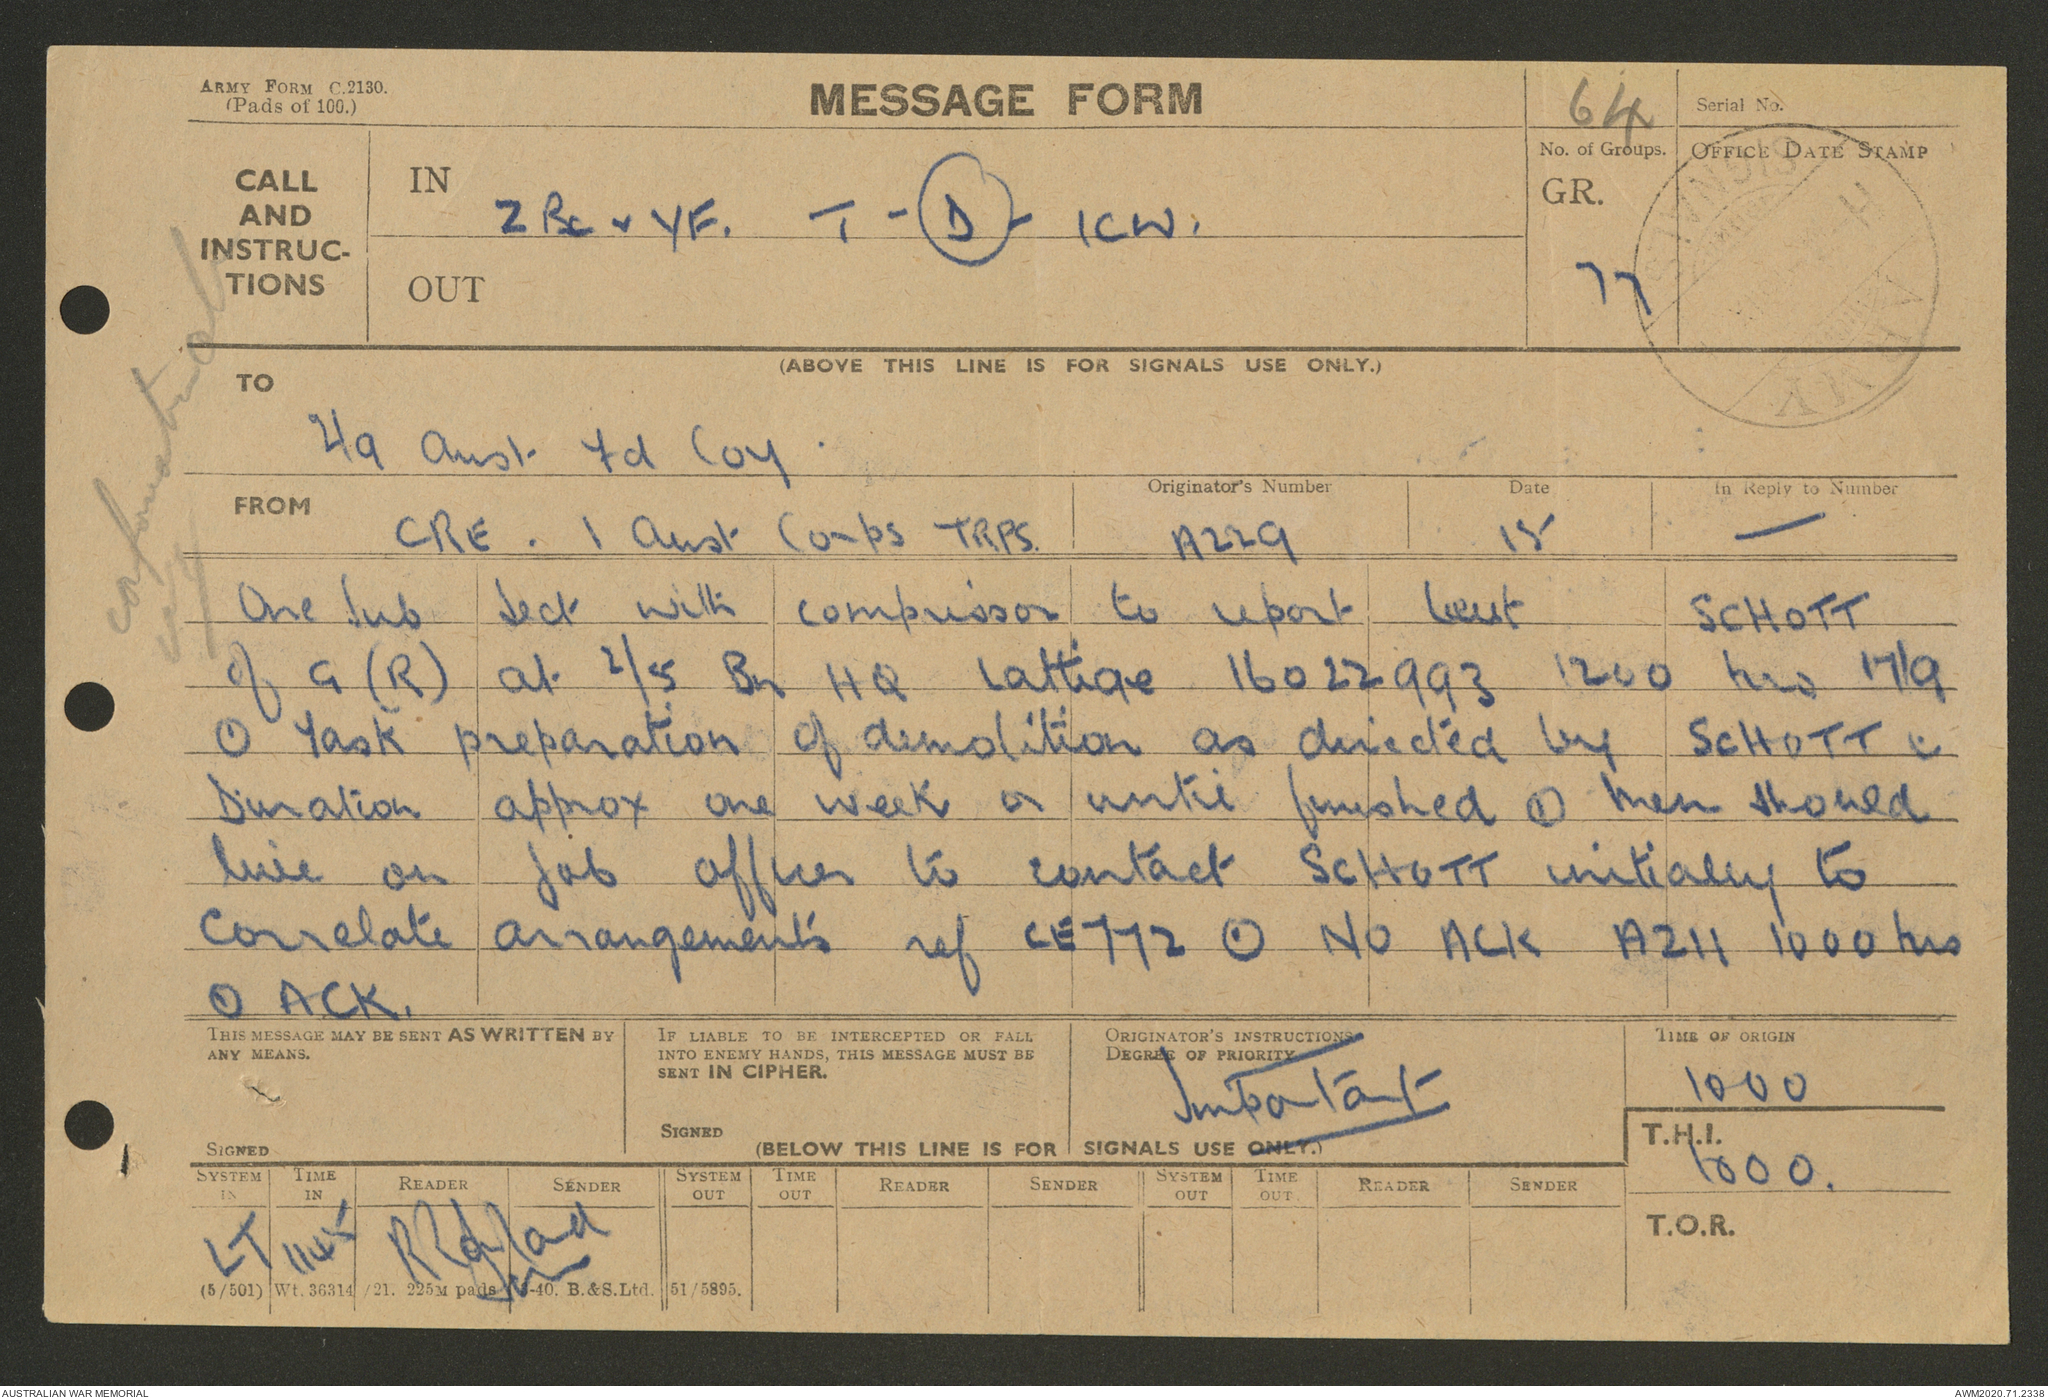 ARMY FORM C.2130.
(Pads of 100.)
MESSAGE FORM
64
Serial No.
CALL
AND
INSTRUC-
TIONS
IN
T - D - ICW.
OUT
No. of Groups.
GR.
77
OFFICE DATE STAMP
SIGNALS
ARMY
(ABOVE THIS LINE IS FOR SIGNALS USE ONLY.)
TO
2/9 Aust Fd Coy.
FROM
CRE. 1 Aust Corps TRPS.
Originator's Number
A229
Date
15
In Reply to Number
—
One Sub Sect with compressor to report Lieut SCHOTT
of G (R) at 2/5 Bn HQ Lattige 16022993 1200 hrs 17/9
⊙ Task preparation of demolition as directed by SCHOTT ⊙
Duration approx one week or until finished ⊙ Men should
live on job officer to contact SCHOTT initially to
correlate arrangements ref CE772 ⊙ NO ACK A211 1000 hrs
⊙ ACK.
THIS MESSAGE MAY BE SENT AS WRITTEN BY
ANY MEANS.
SIGNED
IF LIABLE TO BE INTERCEPTED OR FALL
INTO ENEMY HANDS, THIS MESSAGE MUST BE
SENT IN CIPHER.
SIGNED
ORIGINATOR'S INSTRUCTIONS
DEGREE OF PRIORITY
Important
TIME OF ORIGIN
1000
T.H.I.
1000.
T.O.R.
(BELOW THIS LINE IS FOR SIGNALS USE ONLY.)
SYSTEM IN
TIME IN
READER
SENDER
SYSTEM OUT
TIME OUT
READER
SENDER
SYSTEM OUT
TIME OUT.
READER
SENDER
LT 1145
(5/501) Wt. 36314/21. 225M pads -40. B.&S.Ltd. 51/5895.
AUSTRALIAN WAR MEMORIAL
AWM2020.71.2338